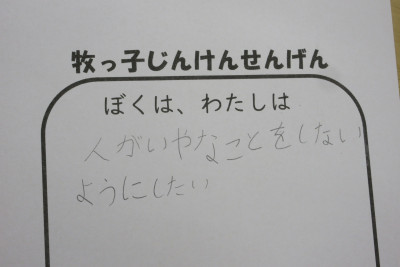 牧っ子じんけんせんげん
ぼくは、わたしは
人がいやなことをしない
ようにしたい